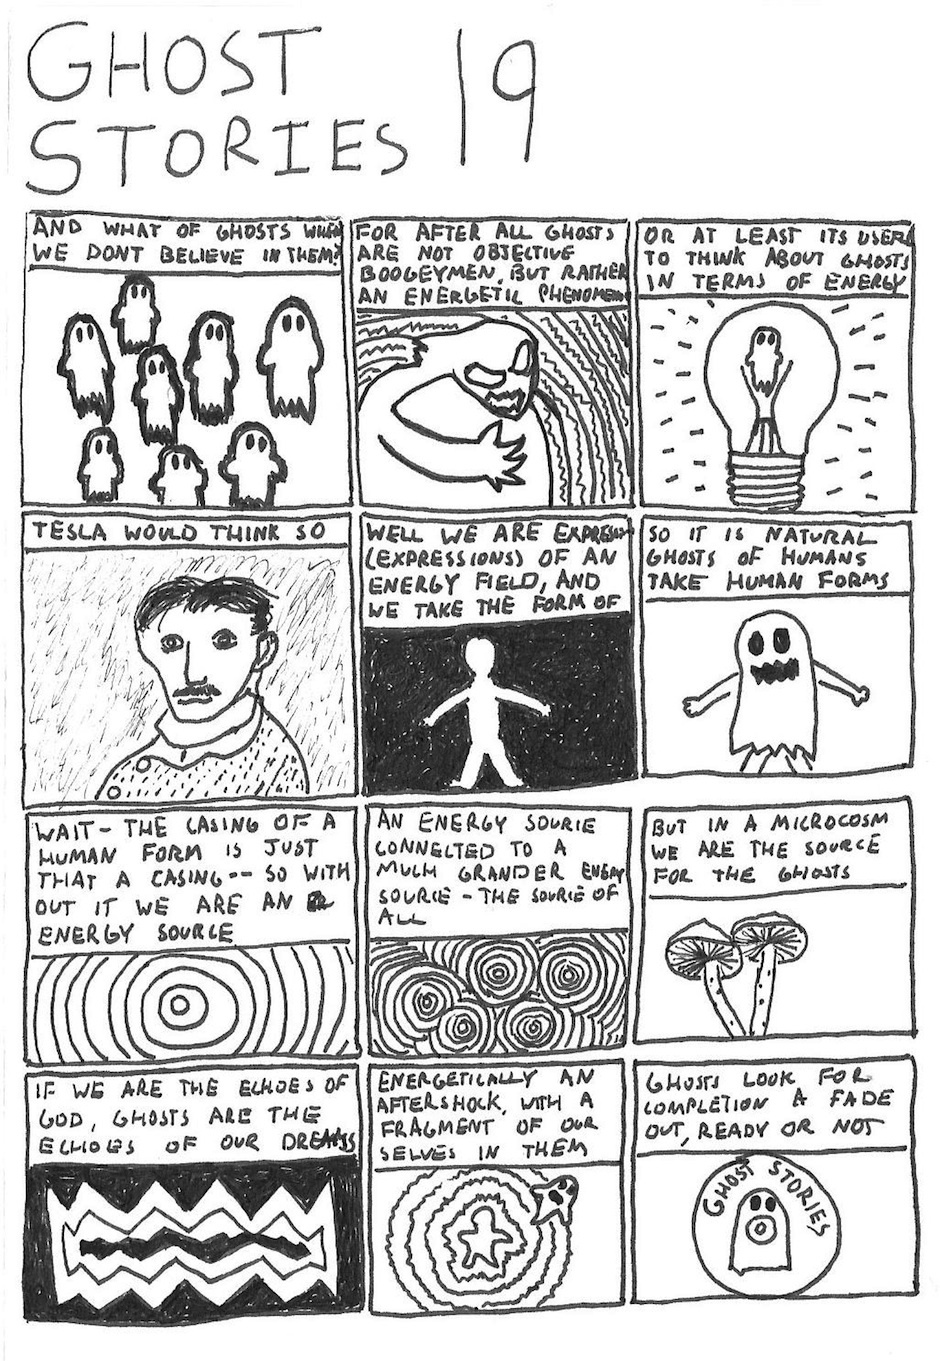 GHOST
STORIES 19
AND WHAT OF GHOSTS WHEN
WE DONT BELIEVE IN THEM?
FOR AFTER ALL GHOSTS
ARE NOT OBJECTIVE
BOOGEYMEN, BUT RATHER
AN ENERGETIC PHENOMENON
OR AT LEAST ITS USEFUL
TO THINK ABOUT GHOSTS
IN TERMS OF ENERGY
TESLA WOULD THINK SO
WELL WE ARE EXPRESSIO
(EXPRESSIONS) OF AN
ENERGY FIELD, AND
WE TAKE THE FORM OF
SO IT IS NATURAL
GHOSTS OF HUMANS
TAKE HUMAN FORMS
WAIT - THE CASING OF A
HUMAN FORM IS JUST
THAT A CASING -- SO WITH
OUT IT WE ARE AN
ENERGY SOURCE
AN ENERGY SOURCE
CONNECTED TO A
MUCH GRANDER ENERGY
SOURCE - THE SOURCE OF
ALL
BUT IN A MICROCOSM
WE ARE THE SOURCE
FOR THE GHOSTS
IF WE ARE THE ECHOES OF
GOD, GHOSTS ARE THE
ECHOES OF OUR DREAMS
ENERGETICALLY AN
AFTERSHOCK, WITH A
FRAGMENT OF OUR
SELVES IN THEM
GHOSTS LOOK FOR
COMPLETION A FADE
OUT, READY OR NOT
GHOST STORIES